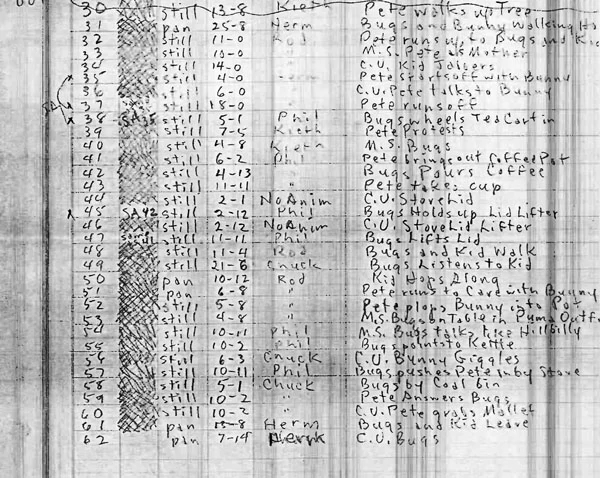 30 still 13-8 Kieth Pete Walks up Tree
31 pan 25-8 Herm Bugs and Bunny Walking
32 still 11-0 Rod Pete runs up to Bugs and
33 still 10-0 " M.S. Pete as Mother
34 still 14-0 " C.U. Kid
35 still 4-0 Herm Pete starts off with Bunny
36 still 6-0 " C.U. Pete talks to Bunny
37 still 18-0 " Pete runs off
38 SA 35 still 5-1 Phil Bugs wheels Tea Cart in
39 still 7-5 Kieth Pete Protests
40 still 4-8 Kieth M.S. Bugs
41 still 6-2 Phil Pete brings out Coffee Pot
42 still 4-13 " Bugs Pours Coffee
43 still 11-11 " Pete takes cup
44 still 2-1 No Anim C.U. Stove Lid
45 SA 42 still 2-12 Phil Bugs Holds up Lid Lifter
46 still 2-12 No Anim C.U. Stove Lid Lifter
47 still 11-11 Phil Bugs Lifts Lid
48 still 11-4 Rod Bugs and Kid Walk
49 still 21-6 Chuck Bugs Listens to Kid
50 pan 10-12 Rod Kid Hops Along
51 pan 6-8 " Pete runs to Cave with Bunny
52 still 5-8 " Pete plops Bunny into Pot
53 still 4-8 " M.S. Bugs on Table in Outf
54 still 10-11 Phil M.S. Bugs talks like Hillbilly
55 still 10-2 Phil Bugs points to Kettle
56 still 6-3 Chuck C.U. Bunny Giggles
57 still 10-11 Phil Bugs pushes Pete in by Stove
58 still 5-1 Chuck Bugs by Coal bin
59 still 10-2 " Pete Answers Bugs
60 still 10-2 " C.U. Pete grabs Mallet
61 pan 15-8 Herm Bugs and Kid Leave
62 pan 7-14 Herm C.U. Bugs